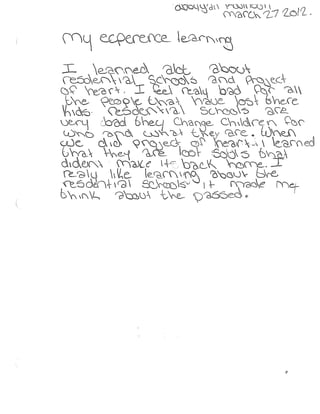 March 27 2012.
My ecperence learning
I learned alot about
resdential Schools and Project
of heart. I feel realy bad for all
the People that have lost there
kids. resdential Schools are
very bad they Change Children for
who and what they are. when
we did project of heart i learned
that they are lost souls that
dident make it back home. I
realy like learning about the
resdential schools. it made me
think about the passed.